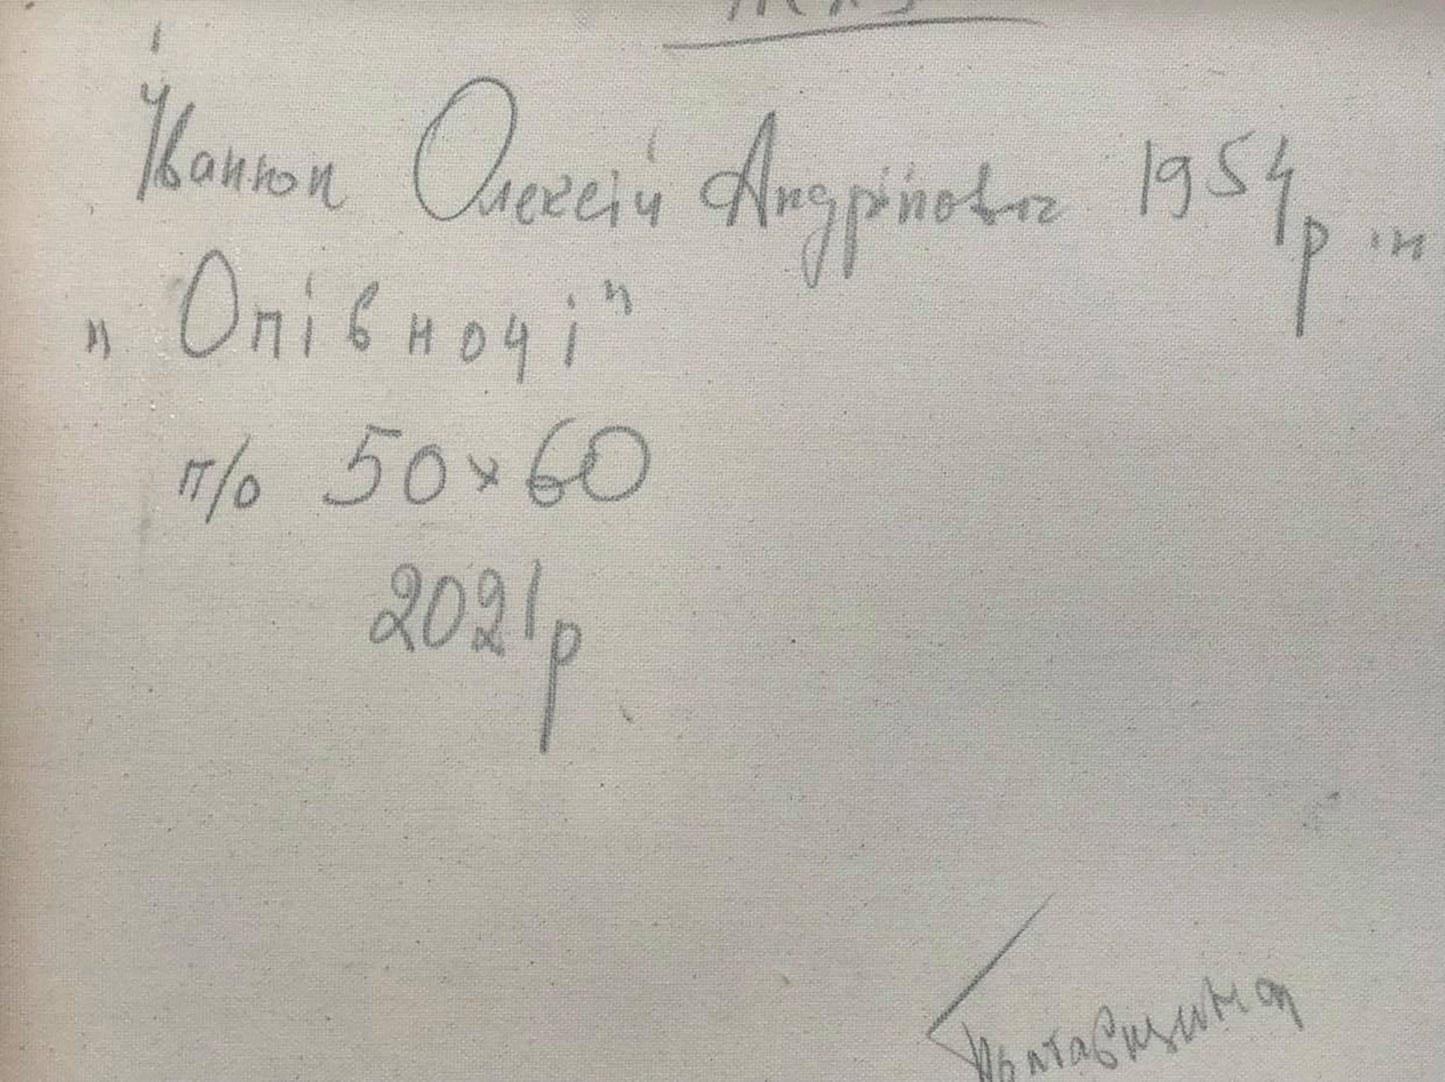 Іванюк Олексій Андрійович 1954 р.н.
„Опівночі"
п/о 50×60
2021 р
Полтавщина